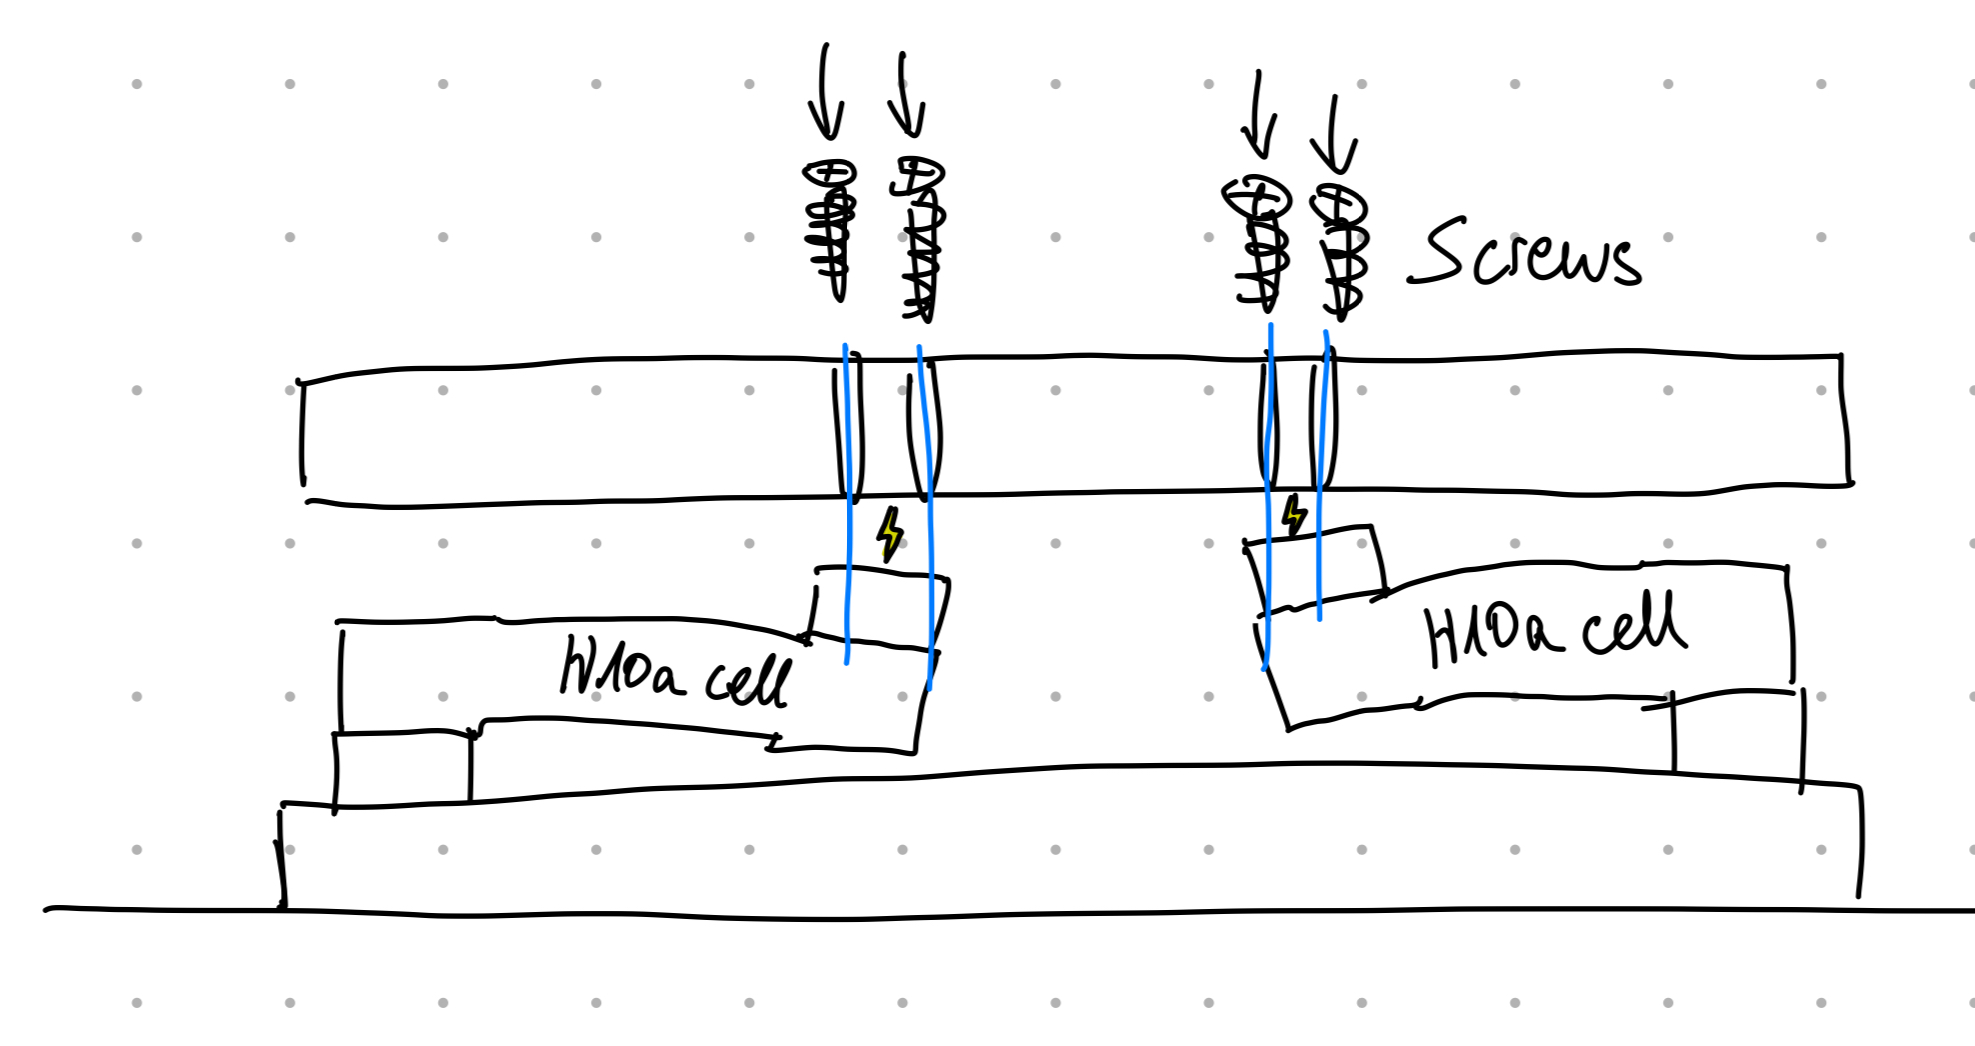 Screws
H10a cell
H10a cell